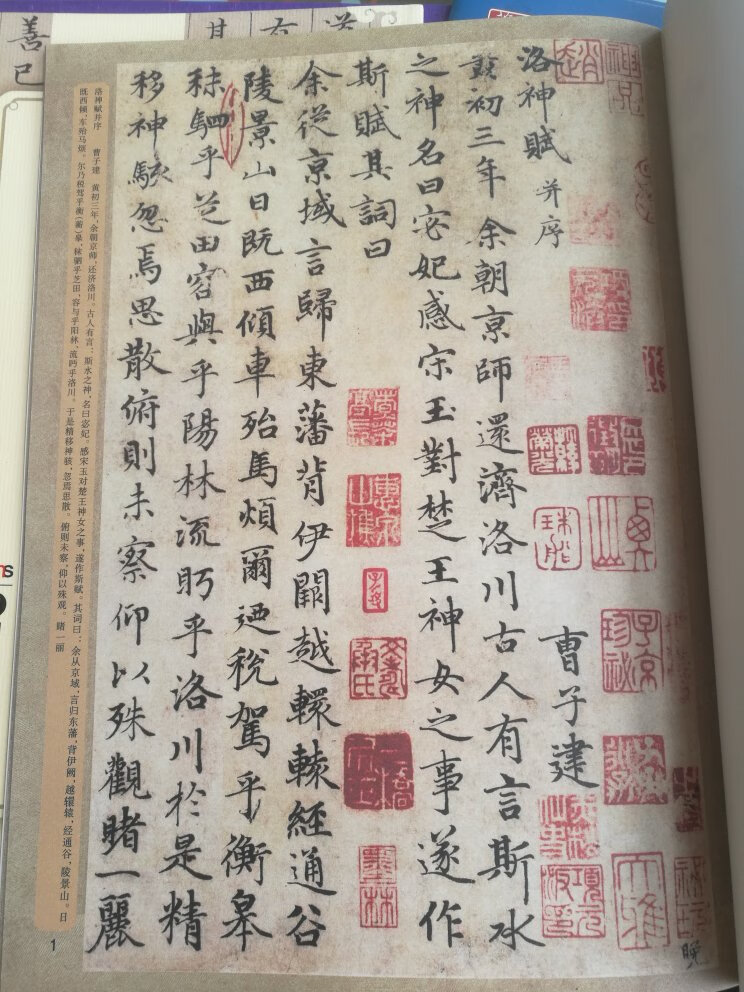 洛神賦 并序 曹子建
黄初三年余朝京師還濟洛川古人有言斯水
之神名曰宓妃感宋玉對楚王神女之事遂作
斯賦其詞曰
余從京域言歸東藩背伊闕越轘轅經通谷
陵景山日既西傾車殆馬煩爾迺稅駕乎衡皋
秣駟乎芝田容與乎陽林流眄乎洛川於是精
移神駭忽焉思散俯則未察仰以殊觀睹一麗
洛神赋并序 曹子建 黄初三年,余朝京师,还济洛川。古人有言:斯水之神,名曰宓妃。感宋玉对楚王神女之事,遂作斯赋。其词曰: 余从京域,言归东藩,背伊阙,越轘辕,经通谷,陵景山。日
既西倾,车殆马烦。尔乃税驾乎衡(蘅)皋,秣驷乎芝田,容与乎阳林,流眄乎洛川。于是精移神骇,忽焉思散。俯则未察,仰以殊观。睹一丽
1
子京珍秘
晚
有
其
善已